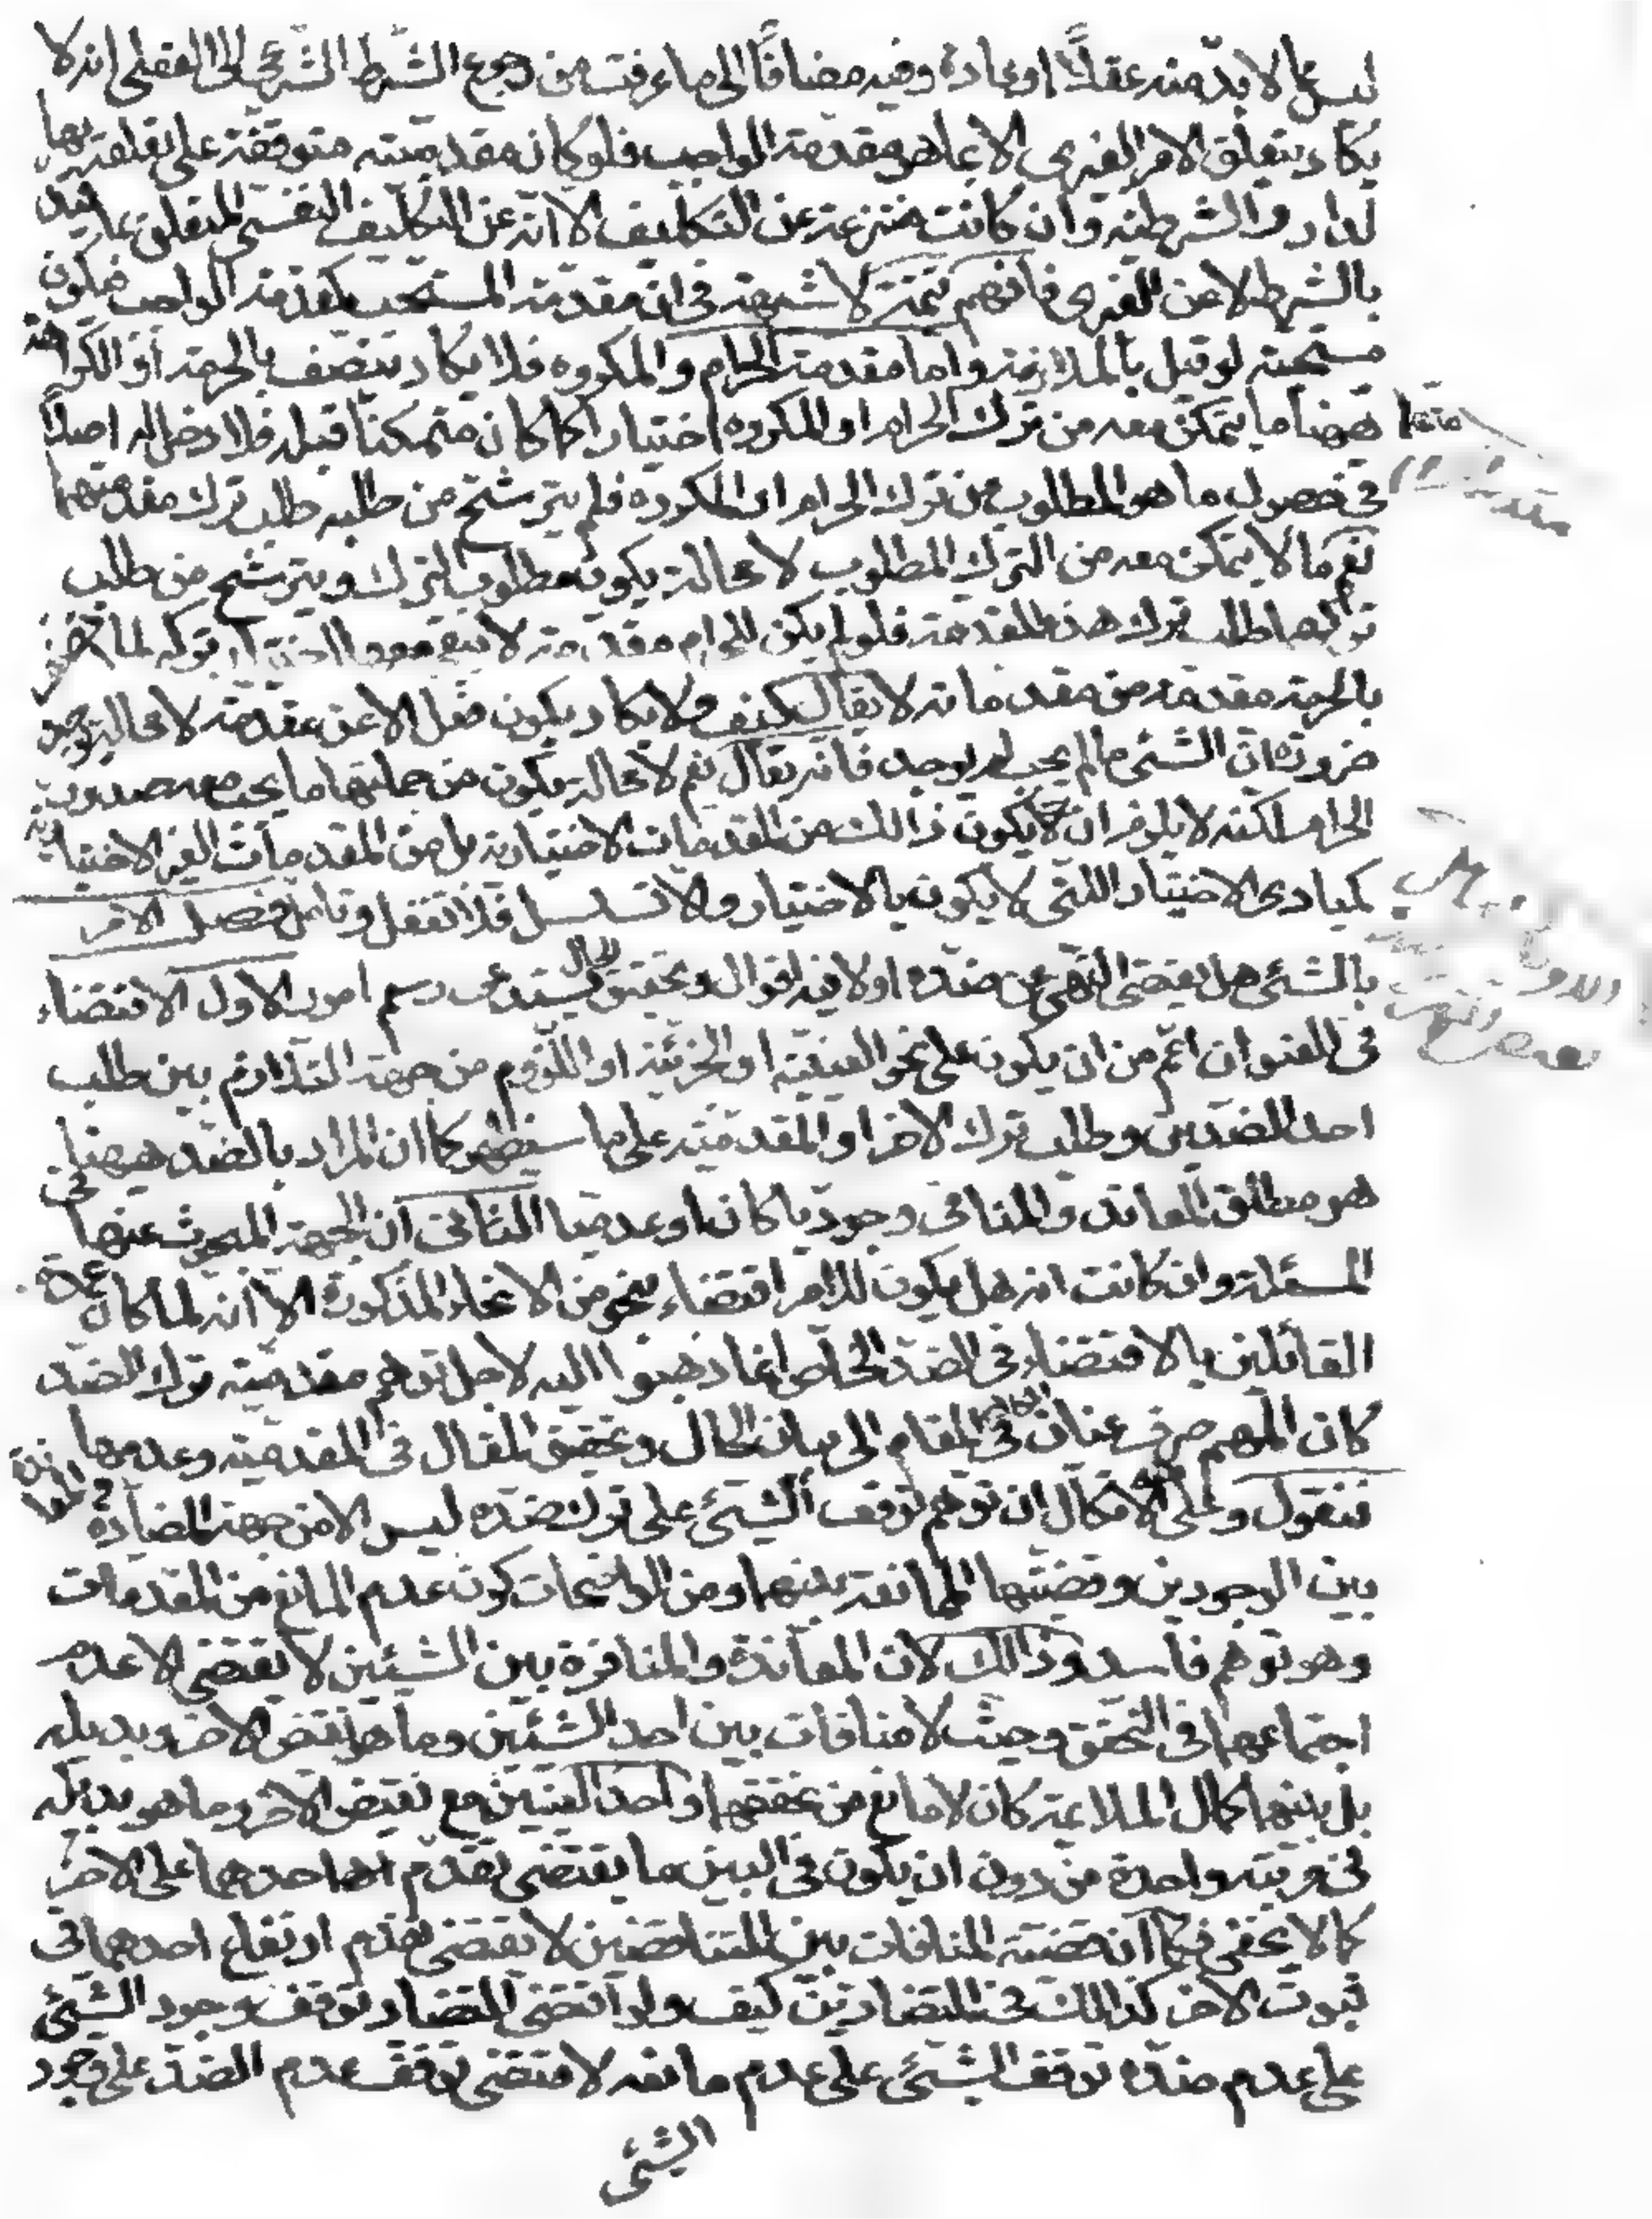 ليس مما لا بد منه عقلاً او عادة وفيه مضافًا الى ما عرفت من رجوع الشرط الشرعي الى العقلي انه لا
يكاد يتعلق الامر الغيرى الا بما هو مقدمة الواجب فلو كان مقدميته متوقفة على تعلقه بها
لدار والشرطية وان كانت منتزعة عن التكليف الا انه عن التكليف النفسى المتعلق بما قيد
بالشرط لا عن الغيرى فافهم تتمة لا شبهة فى ان مقدمة المستحب كمقدمة الواجب فيكون
مستحبة لو قيل بالملازمة واما مقدمة الحرام والمكروه فلا يكاد يتصف بالحرمة او الكراهة
اذ منها ما يتمكن معه من ترك الحرام او المكروه اختيارا كما كان متمكنا قبله فلا دخل له اصلاً
فى حصول ما هو المطلوب من ترك الحرام او المكروه فلم يترشح من طلبه طلب ترك مقدمتهما
نعم ما لا يتمكن معه من الترك المطلوب لا محالة يكون مطلوب الترك ويترشح من طلب
تركهما طلب ترك هذه المقدمة فلو لم يكن للحرام مقدمة لا يبقى معها اختيار تركه لما اتصف
بالحرمة مقدمة من مقدماته لا يقال كيف ولا يكاد يكون فعل الا عن مقدمة لا محالة يوجد
ضرورة ان الشئ ما لم يجب لم يوجد فانه يقال نعم لا محالة يكون من جملتها ما يجب معه صدور
الحرام لكنه لا يلزم ان يكون ذالك من المقدمات الاختيارية بل من المقدمات الغير الاختيارية
كمبادى الاختيار اللتى لا يكون بالاختيار والا لتسلسل فلا تغفل وتامل فصل الامر
بالشئ هل يقتضى النهى عن ضده او لا فيه اقوال وتحقيق الحال يستدعى رسم امور الاول الاقتضاء
فى العنوان اعم من ان يكون على نحو العينية او الجزئية او اللزوم من جهة التلازم بين طلب
احد الضدين وطلب ترك الاخر او المقدمية على ما سيظهر كما ان المراد بالضد هيهنا
هو مطلق المعاند والمنافى وجوديا كان او عدميا الثانى ان الجهة المبحوث عنها فى
المسئلة وان كانت انه هل يكون للامر اقتضاء بنحو من الانحاء المذكورة الا انه لما كان عمدة
القائلين بالاقتضاء فى الضد الخاص انما ذهبوا اليه لاجل توهم مقدمية ترك الضد
كان المهم صرف عنان الكلام فى المقام الى بيان الحال وتحقيق المقال فى المقدمية وعدمها
فنقول وعلى الله الاتكال ان توهم توقف الشئ على ترك ضده ليس الا من جهة المضادة والمعاندة
بين الوجودين وقضيتها الممانعة بينهما ومن الواضحات كون عدم المانع من المقدمات
وهو توهم فاسد وذالك لان المعاندة والمنافرة بين الشيئين لا تقتضى الا عدم
اجتماعهما فى التحقق وحيث لا منافات بين احد الشئين وما هو نقيض الاخر وبديله
بل بينهما كمال الملائمة كان لا مانع من تحققهما واحد العينين مع نقيض الاخر وما هو بديله
فى مرتبة واحدة من دون ان يكون فى البين ما يقتضى تقدم احدهما على الاخر
كما لا يخفى فكما ان قضية المنافات بين المتناقضين لا تقتضى تقدم ارتفاع احدهما فى
ثبوت الاخر كذالك فى المتضادين كيف ولو اقتضى التضاد توقف وجود الشئ
على عدم ضده توقف الشئ على عدم مانعه لاقتضى توقف عدم الضد على وجود
الشئ